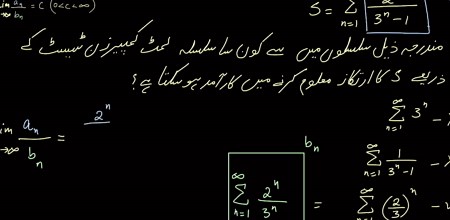 lim n→∞ a_n/b_n = C (0<C<∞)
S = ∑_{n=1}^{∞} 2^n/(3^n − 1)
مندرجہ ذیل سلسلوں میں سے کون سا سلسلہ لمٹ کمپیریزن ٹیسٹ کے
ذریعے S کا ارتکاز معلوم کرنے میں کارآمد ہو سکتا ہے؟
∑_{n=1}^{∞} 3^n −
lim →∞ a_n/b_n = 2^n
b_n
∑_{n=1}^{∞} 1/(3^n − 1) −
∑_{n=1}^{∞} 2^n/3^n = ∑_{n=1}^{∞} (2/3)^n −